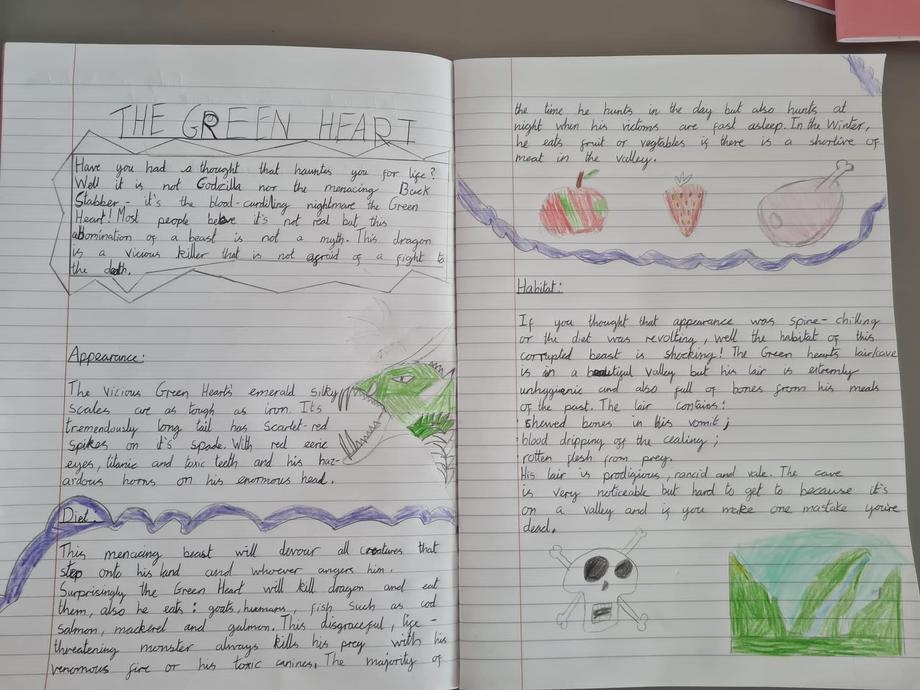 THE GREEN HEART
Have you had a thought that hauntes you for life?
Well it is not Godzilla nor the menacing Back
Stabber - it's the blood-curdiling nightmare the Green
Heart! Most people believe it's not real but this
abomination of a beast is not a myth. This dragon
is a vicious killer that is not afraid of a fight to
the death.
Appearance:
The vicious Green Heart's emerald silky
scales are as tough as iron. Its
tremendously long tail has scarlet-red
spikes on it's spade. With red eerie
eyes, titanic and toxic teeth and his haz-
ardous horns on his enormous head.
Diet.
This menacing beast will devour all creatures that
step onto his land and whoever angers him.
Surprisingly the Green Heart will kill dragon and eat
them, also he eats: goats, humans, fish such as cod
salmon, mackerel and This disgraceful, life-
threatening monster always kills his prey with his
venomous fire or his toxic canines. The majority of
the time he hunts in the day but also hunts at
night when his victoms are fast asleep. In the Winter,
he eats fruit or vegtables if there is a shortive of
meat in the valley.
Habitat:
If you thought that appearance was spine-chilling
or the diet was revolting, well the habitat of this
corrupted beast is shocking! The Green hearts lair/cave
is in a beautiful valley but his lair is extremly
unhygienic and also full of bones from his meals
of the past. The lair contains:
shewed bones in his vomit;
blood dripping of the cealing;
rotten flesh from prey.
His lair is prodigious, rancid and vale. The cave
is very noticeable but hard to get to because it's
on a valley and if you make one mastake you're
dead.